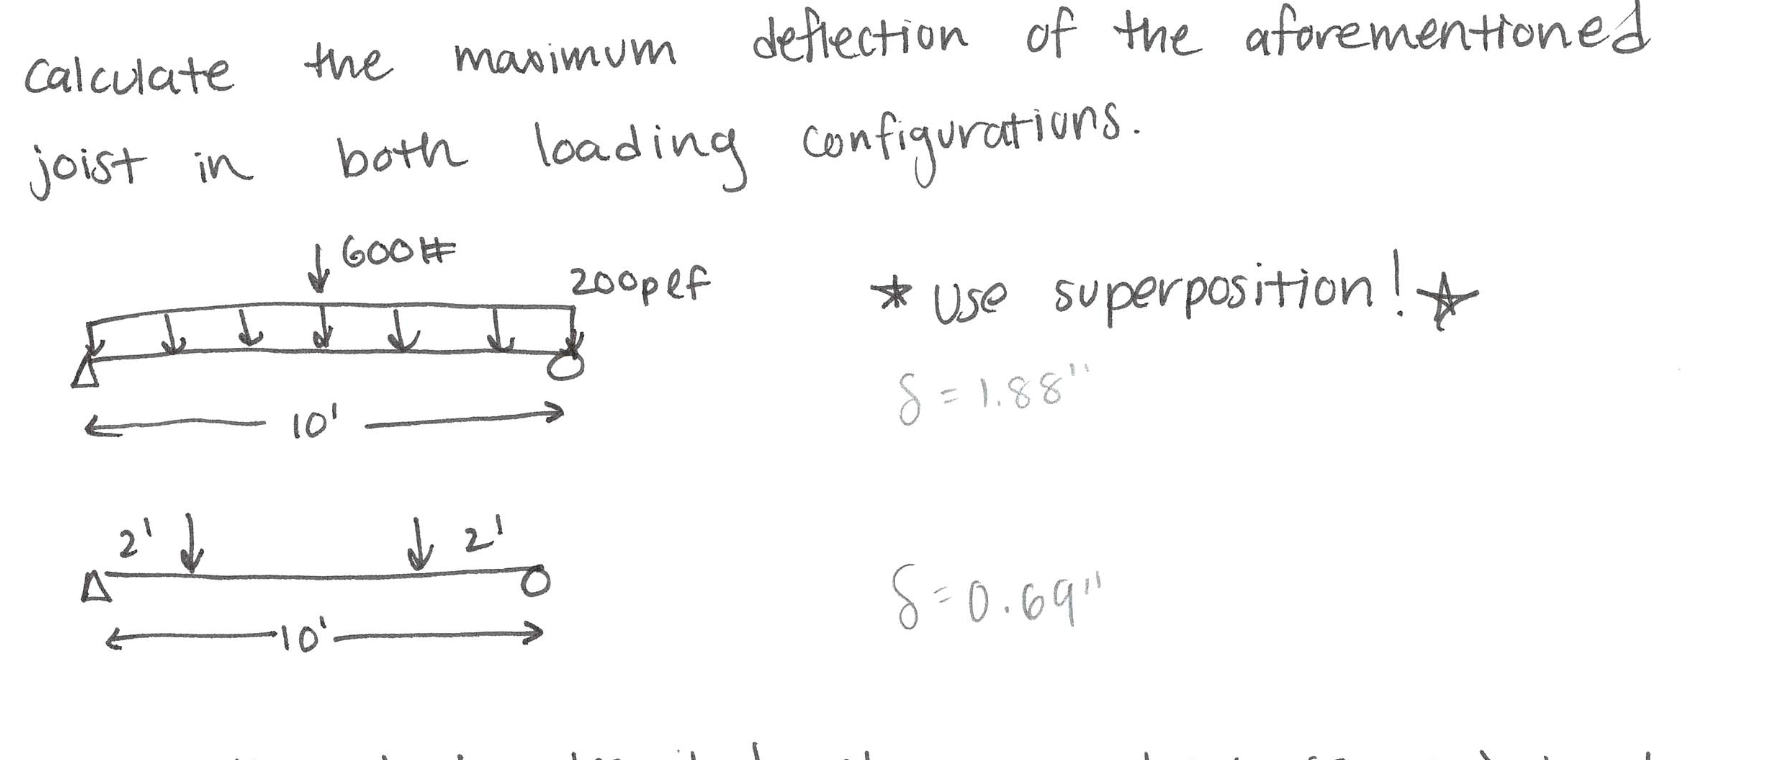 calculate the maximum deflection of the aforementioned
joist in both loading configurations.
600#
200plf
* Use superposition! ☆
δ = 1.88"
10'
2' 2'
δ = 0.69"
10'